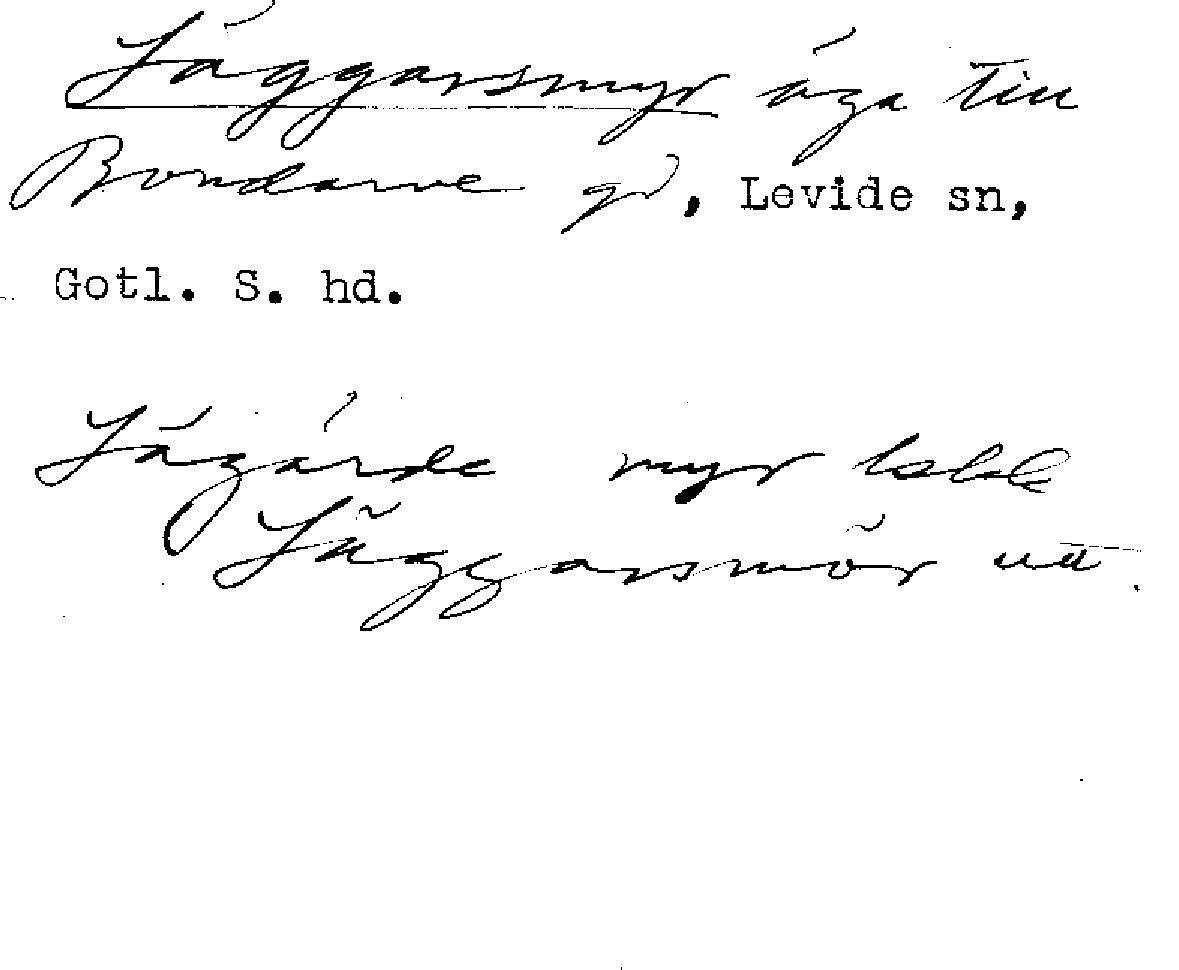 Läggarsmyr äga till
Bondarve gd, Levide sn,
Gotl. S. hd.
Lägårde myr
Läggarsmör utt.